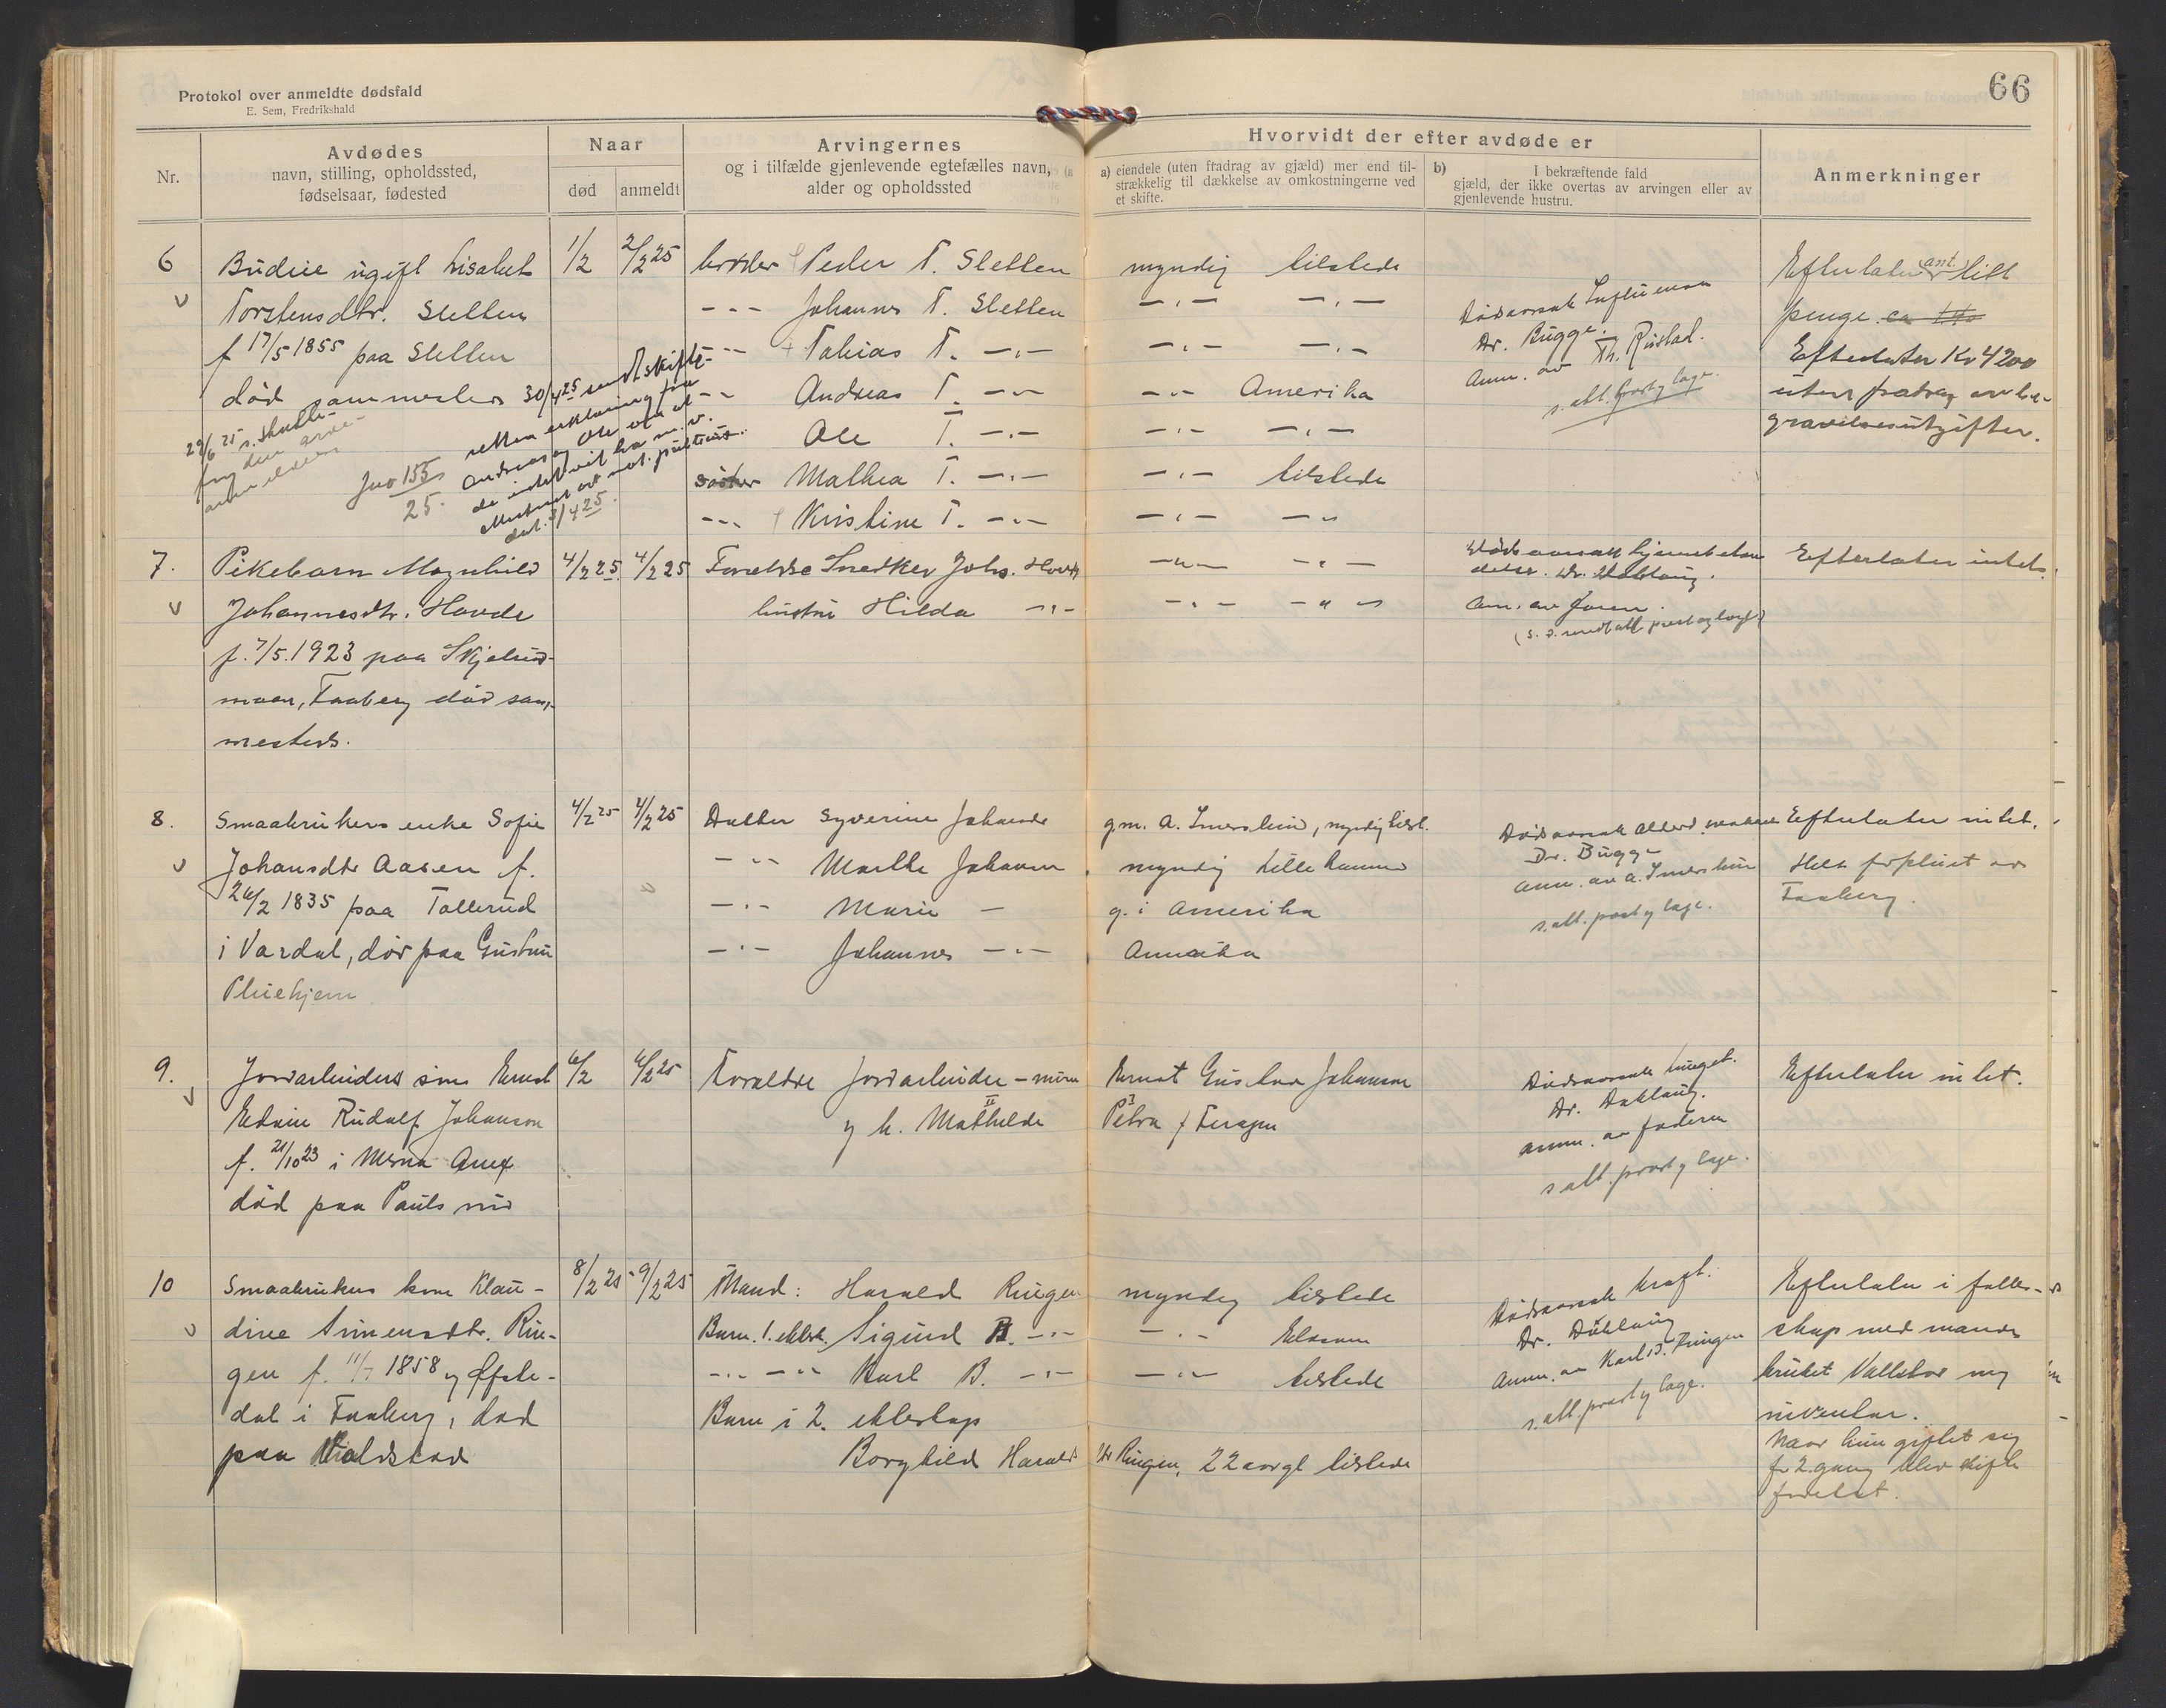 66
Protokol over anmeldte dødsfald
E. Sem, Fredrikshald
Nr.
Avdødes
navn, stilling, opholdssted,
fødselsaar, fødested
Naar
død
anmeldt
Arvingernes
og i tilfælde gjenlevende egtefælles navn,
alder og opholdssted
Hvorvidt der efter avdøde er
a) eiendele (uten fradrag av gjæld) mer end til-
strækkelig til dækkelse av omkostningerne ved
et skifte.
b) I bekræftende fald
gjæld, der ikke overtas av arvingen eller av
gjenlevende hustru.
Anmerkninger
6
Budeie ugift Lisabet
Torstensdtr. Sletten
f 17/5 1855 paa Sletten
død sammesteds
30/4 25 sendt skifte-
retten erklæring fra
Andreas og Ole om at
29/6 25 s.
Jno 155
25.
1/2
2/2 25
broder Peder T. Sletten
--- Johannes T. Sletten
-- Tobias T. -"-
-- Andreas T. -"-
Ole T. -"-
søster Mathea T. -"-
--- Kristine T. -"-
myndig tilstede
-"- -"-
-"- -"-
-"- Amerika
-"- -"-
-"- tilstede
-"- -"
Dødsaarsak Influensa
Dr. Bugge.
Anm. av Th. Rustad.
s. att. prest og lage.
Efterlater ant. litt
penge. ca
Efterlater Kr 4200
uten fradrag av be-
gravelsesutgifter.
7.
Pikebarn Magnhild
Johannesdtr. Hovde
f. 7/5. 1923 paa Skjelsud-
moen, Faaberg død sam-
mesteds.
4/2 25
4/2 25
Foreldre Snedker Johs. Hovde
hustru Hilda -"-
-"- -"-
-"- -"-
Dødsaarsak hjernebetæn
delse. Dr. Dahlaug.
Anm. av faren.
Efterlater intet.
8.
Smaabrukers enke Sofie
Johansdtr Aasen f.
26/2 1835 paa Tollerud
i Vardal, død paa Gustum
Pleiehjem
4/2 25
4/2 25
Datter Syverine Johansdtr
-"- Marthe Johansen
-"- Marie -
-"- Johannes -"-
g.m. A. Imerslund, myndig tilst.
myndig Lillehammer
g. i Amerika
Amerika
Dødsaarsak Alderd. svakhet
Dr. Bugge
anm. av A. Imerslund
s. att. prest og lage.
Efterlater intet.
Helt forpleiet av
Faaberg.
9.
Jordarbeiders søn Ernst
Edvin Rudolf Johanson
f. 21/10 23 i Mesna Anex
død paa Paulsrud
6/2
6/2 25
Foreldre Jordarbeider -
og h. Mathilde
Ernst Gustav Johanson
Petra f
Dr. Dahlaug.
anm. av faderen
s att. prest og lage.
Efterlater intet.
10
Smaabrukers kone Klau-
dine Simensdtr. Rin-
gen f. 11/7 1858 og Øfste-
dal i Faaberg, død
paa
8/2 25
9/2 25
Mand: Harald Ringen
Barn. 1. ektesk. Sigurd B. -"-
-"- -"- Karl B. -"-
Barn i 2. ekteskap
Borghild Haralds
dtr Ringen, 22 aar gl tilstede
myndig tilstede
-"-
-"- tilstede
Dødsaarsak kræft.
Dr. Dahlaug
Anm. av Karl B. Ringen
s. att. prest og lage.
Efterlater i felles-
skap med mande
bruket Vallstad og
inventar.
Naar hun giftet sig
for 2. gang blev skifte
foretat.